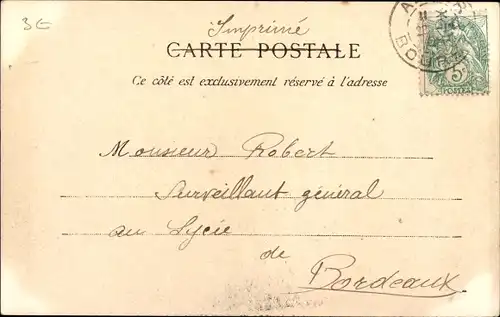 3€
Imprimé
CARTE POSTALE
Ce côté est exclusivement réservé à l'adresse
5
POSTES
Monsieur Robert
Surveillant général
au Lycée
de
Bordeaux